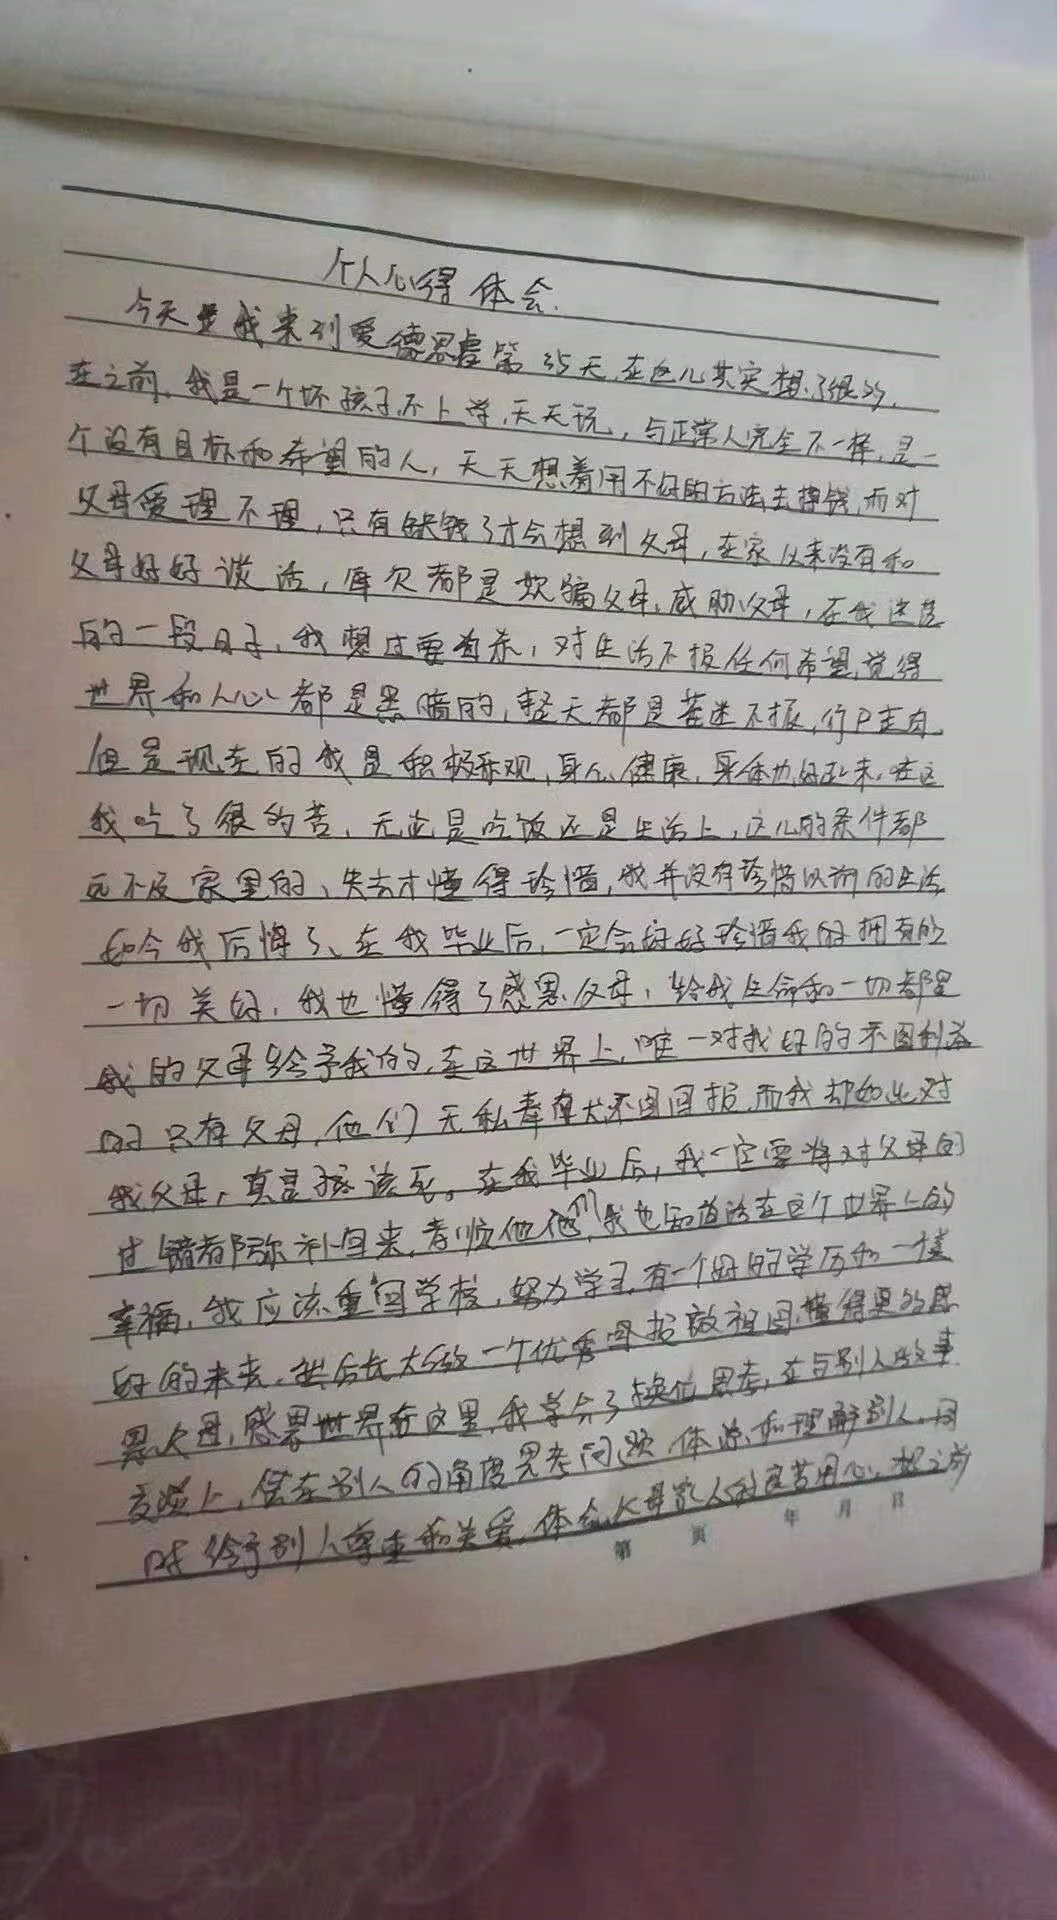 个人心得体会.
今天是我来到爱德思睿第35天,在这儿其实想了很多,
在之前,我是一个坏孩子,不上学,天天玩,与正常人完全不一样,是一
个没有目标和希望的人,天天想着用不好的方法去挣钱,而对
父母爱理不理,只有缺钱了才会想到父母,在家从来没有和
父母好好谈话,每次都是欺骗父母,威胁父母,在我这
的一段日子,我想过要自杀,对生活不报任何希望,觉得
世界和人心都是黑暗的,整天都是萎迷不振,行尸走肉,
但是现在的我是积极乐观,身心健康,身体也好起来,在这
我吃了很多苦,无论是吃饭还是生活上,这儿的条件都
远不及家里的,失去才懂得珍惜,我并没有珍惜以前的生活,
如今我后悔了,在我毕业后,一定会好好珍惜我的拥有的
一切美好,我也懂得了感恩父母,给我生命和一切都是
我的父母给予我的,在这世界上,唯一对我好的不图利益
的只有父母,他们无私奉献不图回报,而我却如此对
我父母,真是孩该死。在我毕业后,我一定要将对父母的
过错都弥补回来,孝顺他们,我也知道活在这个世界上的
幸福,我应该重回学校,努力学习,有一个好的学历和一懂
好的未来,然后长大做一个优秀回报祖国,懂得更多感
恩父母,感恩世界,在这里,我学会了换位思考,在与别人做事
交谈上,会在别人的角度思考问题,体谅和理解别人,同
时给予别人尊重和关爱,体会父母家人的良苦用心,想之前
第 页 年 月 日